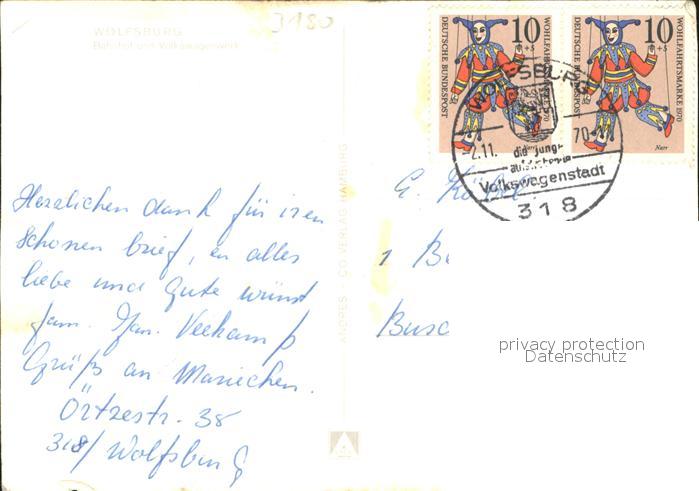 3180
WOLFSBURG
Bahnhof und Volkswagenwerk
DEUTSCHE BUNDESPOST
10
+5
WOHLFAHRTSMARKE 1970
DEUTSCHE BUNDESPOST
10
+5
WOHLFAHRTSMARKE 1970
Narr
WOLFSBURG
-2.11. 70-
die junge
Volkswagenstadt
318
Herzlichen dank für iren
Schönen brief, en alles
liebe und Gute wünst
fam. Jan. Veekamp
Grüß an Maniechen.
Örtzestr. 38
318/ Wolfsburg
ANDRES + CO VERLAG HAMBURG
G.
1 Be
Busc
privacy protection
Datenschutz